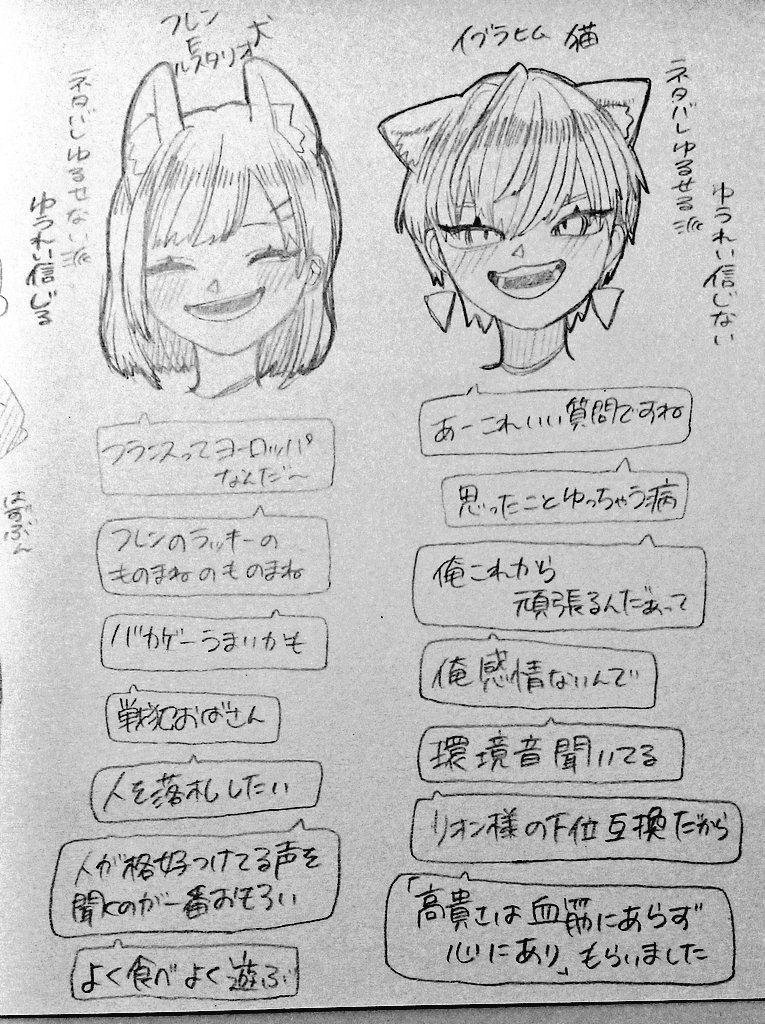 フレン
E
ルスタリオ 犬
ネタバレゆるせない派
ゆうれい信じる
フランスってヨーロッパ
なんだ〜
フレンのラッキーの
ものまねのものまね
バカゲーうまいかも
戦犯おばさん
人を落札したい
人が格好つけてる声を
聞くのが一番おもろい
よく食べよく遊ぶ
イブラヒム 猫
ネタバレゆるせる派
ゆうれい信じない
あーこれいい質問ですね
思ったことゆっちゃう病
俺これから
頑張るんだぁって
俺感情ないんで
環境音聞いてる
リオン様の下位互換だから
「高貴さは血筋にあらず
心にあり」もらいました